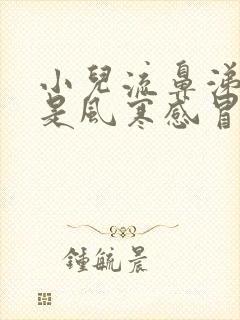 小兒流鼻涕
是風寒感冒
鍾毓晨